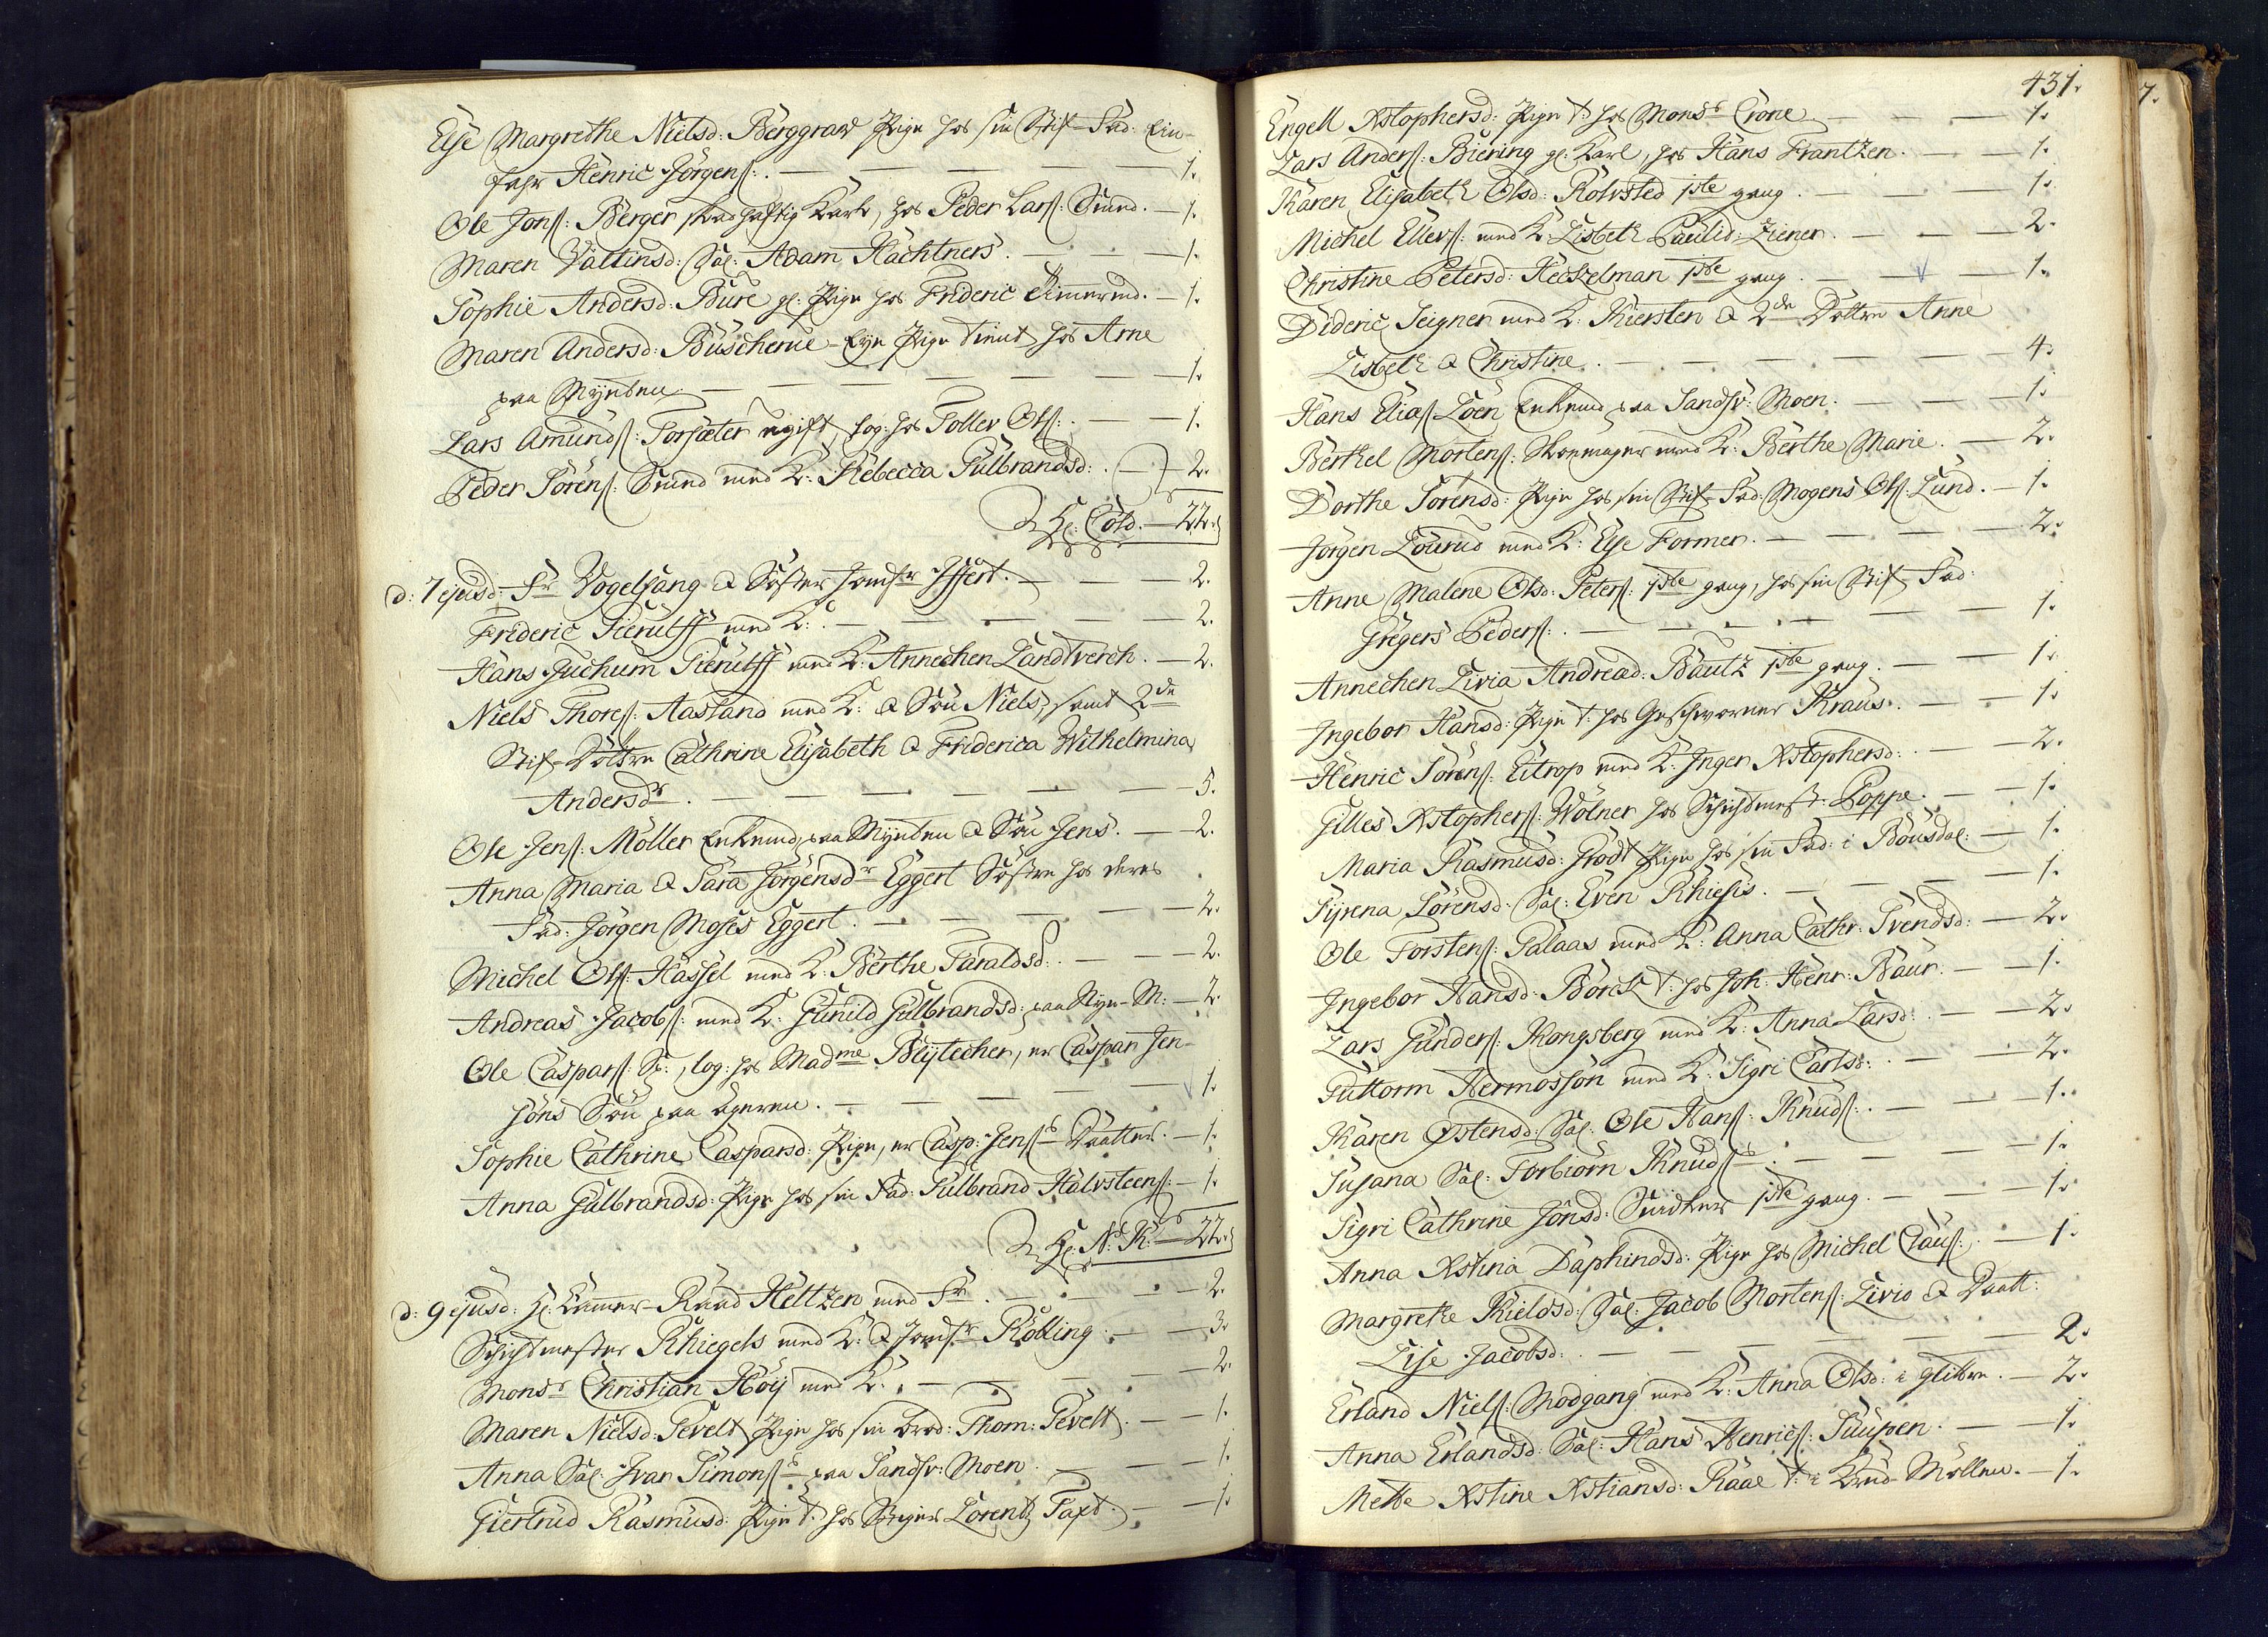 Else Margrethe Nielsd: Berggraw Pige hos sin Stif-Fad: Ein-
fahr Henric Jörgenß: . — 1.
Ole Jonß: Berger skadhaftig Karl, hos Peder Larß: Smed. — 1.
Maren Valtinsd: Sal: Adam Hachtners . — 1.
Sophie Andersd: Bure gl: Pige hos Frideric Timmermd. — 1.
Maren Andersd: Büscherue - Eye Pige tient hos Arne
paa Mynten. — 1.
Lars Amundß: Torsæter ugift, log: hos Tollev Olß: . — 1.
Peder Sörenß: Smed med K: Rebecca Gulbrandsd: . — 2.
Hr: Cold. — 22.
d: 7 ejusd: Fr Vogelsang & Söster Jomfr Iffert. — 2.
Frideric Sierulff med K: . — 2.
Hans Juchum Sierulff med K: Annechen Landtverch. — 2.
Niels Thoreß: Aasland med K: & Sön Niels, samt 2de
Stif-Döttre Cathrine Elisabeth & Friderica Wilhelmina
Andersdr . — 5.
Ole Jenß: Möller Enkemd paa Mynten & Sön Jens. — 2.
Anna Maria & Sara Jörgensdr Eggert Söstre hos deres
Fad: Jörgen Moses Eggert. — 2.
Michel Olß: Hassel med K: Berthe Taraldsd: . — 2.
Andreas Jacobß: med K: Gunild Gulbrandsd: paa Nye-M: — 2.
Ole Casparß: S:, log: hos Madme Bleytecher, er Caspar Jen-
söns Sön paa Ageren. — 1.
Sophie Cathrine Casparsd: Pige, er Casp: Jenß Daatter. — 1.
Anna Gulbrandsd: Pige hos sin Fad: Gulbrand Halvsteenß: — 1.
Hr: N: K: — 22.
d: 9 ejusd: Hr: Cammer-Raad Heltzen med Fr . — 2.
Schichtmester Rhiegels med K: & Jomfr Rölling . — 3.
Monsr Christian Höij med K: . — 2.
Maren Nielsd: Tevelt Pige hos sin Brod: Thom: Tevelt. — 1.
Anna Sal: Ivar Simonß paa Sandsv: Moen. — 1.
Giertrud Rasmusd: Pige t: hos Steiger Lorentz Taxt. — 1.
431.
7.
Engell Xstophersd: Pige t: hos Monsr Crone. — 1.
Lars Anderß: Biering gl: Karl, hos Hans Frantzen. — 1.
Karen Elisabeth Olsd: Rolvsted 1ste gang. — 1.
Michel Ellevß: med K: Lisbeth Paulsd: Ziener. — 2.
Christine Petersd: Heckelman 1ste gang. — 1.
Dideric Seigner med K: Kiersten & 2de Döttre Anne
Lisbeth & Christine. — 4.
Hans Eliaß Loen Enkemd paa Sandsv: Moen. — 1.
Berthel Mortenß: Skoemager med K: Berthe Marie. — 2.
Dorthe Sörensd: Pige hos sin Stif-Fad: Mogens Olß: Lund. — 1.
Jörgen Lourud med K: Else Former. — 2.
Anne Malene Olsd: Peterß: 1ste gang, hos sin Stif-Fad:
Gregers Pederß: . — 1.
Annechen Livia Andread: Bautz 1ste gang. — 1.
Ingebor Hansd: Pige t: hos Geschworner Kraus. — 1.
Henric Sörenß: Eitrop med K: Inger Xstophersd: . — 2.
Gilles Xstopherß: Wölner hos Schichtmest: Poppe. — 1.
Maria Rasmusd: Grodt Pige hos sin Fad: i Böusdal. — 1.
Syrena Sörensd: Sal: Even Rhiesis. — 1.
Ole Torstenß: Palaas med K: Anna Cathr: Svendsd: — 2.
Ingebor Hansd: Borch t: hos Joh: Henr: Baur. — 1.
Lars Gunderß: Kongsberg med K: Anna Larsd: . — 2.
Guttorm Hermossön med K: Sigri Carlsd: . — 2.
Karen Östensd: Sal: Ole Hanß: Knudß: . — 1.
Susana Sal: Torbiörn Knudß . — 1.
Sigri Cathrine Jonsd: Snidker 1ste gang. — 1.
Anna Xstina Daphindsd: Pige hos Michel Clauß: . — 1.
Margrethe Kieldsd: Sal: Jacob Mortenß: Livio & Daatt:
Lise Jacobsd: . — 2.
Erland Nielß: Modgang med K: Anna Olsd: i Glitre. — 2.
Anna Erlandsd: Sal: Hans Henricß: Suupen. — 1.
Mette Xstine Xstiansd: Raae t: i Brud-Möllen. — 1.